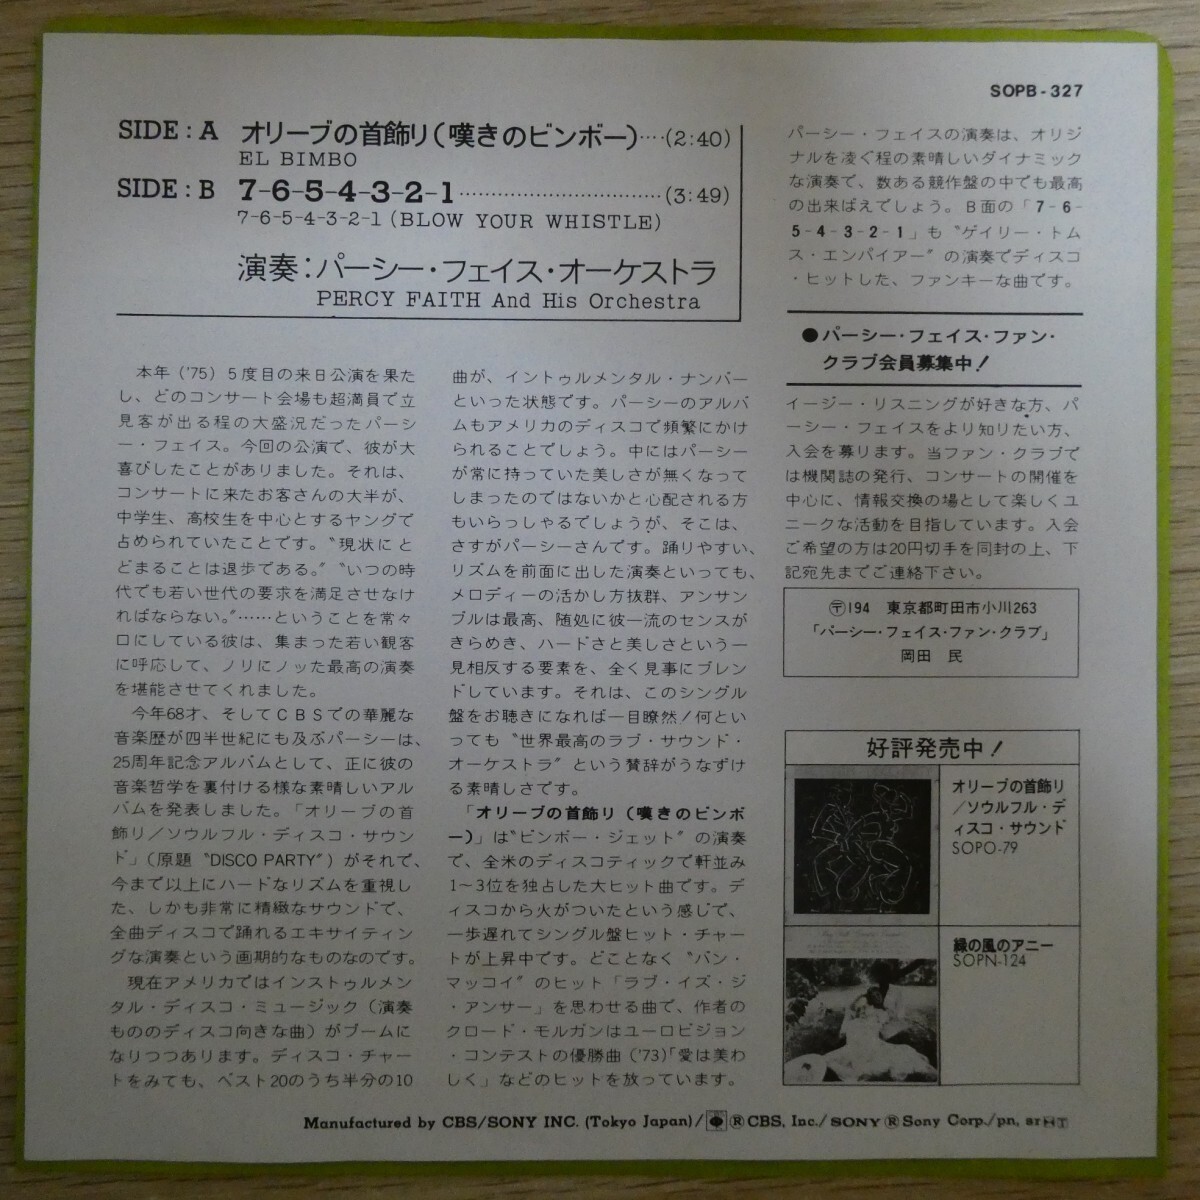 SOPB-327
SIDE : A オリーブの首飾り(嘆きのビンボー)‥‥(2:40)
EL BIMBO
SIDE : B 7-6-5-4-3-2-1‥‥‥‥‥‥‥‥‥‥(3:49)
7-6-5-4-3-2-1 (BLOW YOUR WHISTLE)
演奏：パーシー・フェイス・オーケストラ
PERCY FAITH And His Orchestra
本年('75)5度目の来日公演を果た
し、どのコンサート会場も超満員で立
見客が出る程の大盛況だったパーシ
ー・フェイス。今回の公演で、彼が大
喜びしたことがありました。それは、
コンサートに来たお客さんの大半が、
中学生、高校生を中心とするヤングで
占められていたことです。〝現状にと
どまることは退歩である。〞〝いつの時
代でも若い世代の要求を満足させなけ
ればならない。〞……ということを常々
口にしている彼は、集まった若い観客
に呼応して、ノリにノッた最高の演奏
を堪能させてくれました。
今年68才、そしてCBSでの華麗な
音楽歴が四半世紀にも及ぶパーシーは、
25周年記念アルバムとして、正に彼の
音楽哲学を裏付ける様な素晴しいアル
バムを発表しました。「オリーブの首
飾り/ソウルフル・ディスコ・サウン
ド」(原題〝DISCO PARTY〞)がそれで、
今まで以上にハードなリズムを重視し
た、しかも非常に精緻なサウンドで、
全曲ディスコで踊れるエキサイティン
グな演奏という画期的なものなのです。
現在アメリカではインストゥルメン
タル・ディスコ・ミュージック(演奏
もののディスコ向きな曲)がブームに
なりつつあります。ディスコ・チャー
トをみても、ベスト20のうち半分の10
曲が、イントゥルメンタル・ナンバー
といった状態です。パーシーのアルバ
ムもアメリカのディスコで頻繁にかけ
られることでしょう。中にはパーシー
が常に持っていた美しさが無くなって
しまったのではないかと心配される方
もいらっしゃるでしょうが、そこは、
さすがパーシーさんです。踊りやすい、
リズムを前面に出した演奏といっても、
メロディーの活かし方抜群、アンサン
ブルは最高、随処に彼一流のセンスが
きらめき、ハードさと美しさという一
見相反する要素を、全く見事にブレン
ドしています。それは、このシングル
盤をお聴きになれば一目瞭然！何とい
っても〝世界最高のラブ・サウンド・
オーケストラ〞という賛辞がうなずけ
る素晴しさです。
「オリーブの首飾り(嘆きのビンボ
ー)」は〝ビンボー・ジェット〞の演奏
で、全米のディスコティックで軒並み
1～3位を独占した大ヒット曲です。デ
ィスコから火がついたという感じで、
一歩遅れてシングル盤ヒット・チャー
トが上昇中です。どことなく〝バン・
マッコイ〞のヒット「ラブ・イズ・ジ
・アンサー」を思わせる曲で、作者の
クロード・モルガンはユーロビジョン
・コンテストの優勝曲('73)「愛は美わ
しく」などのヒットを放っています。
パーシー・フェイスの演奏は、オリジ
ナルを凌ぐ程の素晴しいダイナミック
な演奏で、数ある競作盤の中でも最高
の出来ばえでしょう。B面の「7-6-
5-4-3-2-1」も〝ゲイリー・トム
ス・エンパイアー〞の演奏でディスコ
・ヒットした、ファンキーな曲です。
●パーシー・フェイス・ファン・
クラブ会員募集中！
イージー・リスニングが好きな方、パ
ーシー・フェイスをより知りたい方、
入会を募ります。当ファン・クラブで
は機関誌の発行、コンサートの開催を
中心に、情報交換の場として楽しくユ
ニークな活動を目指しています。入会
ご希望の方は20円切手を同封の上、下
記宛先までご連絡下さい。
〶194 東京都町田市小川263
「パーシー・フェイス・ファン・クラブ」
岡田 民
好評発売中！
オリーブの首飾り
/ソウルフル・デ
ィスコ・サウンド
SOPO-79
緑の風のアニー
SOPN-124
Manufactured by CBS/SONY INC. (Tokyo Japan)/ ® CBS, Inc./ SONY ® Sony Corp./pn, ar